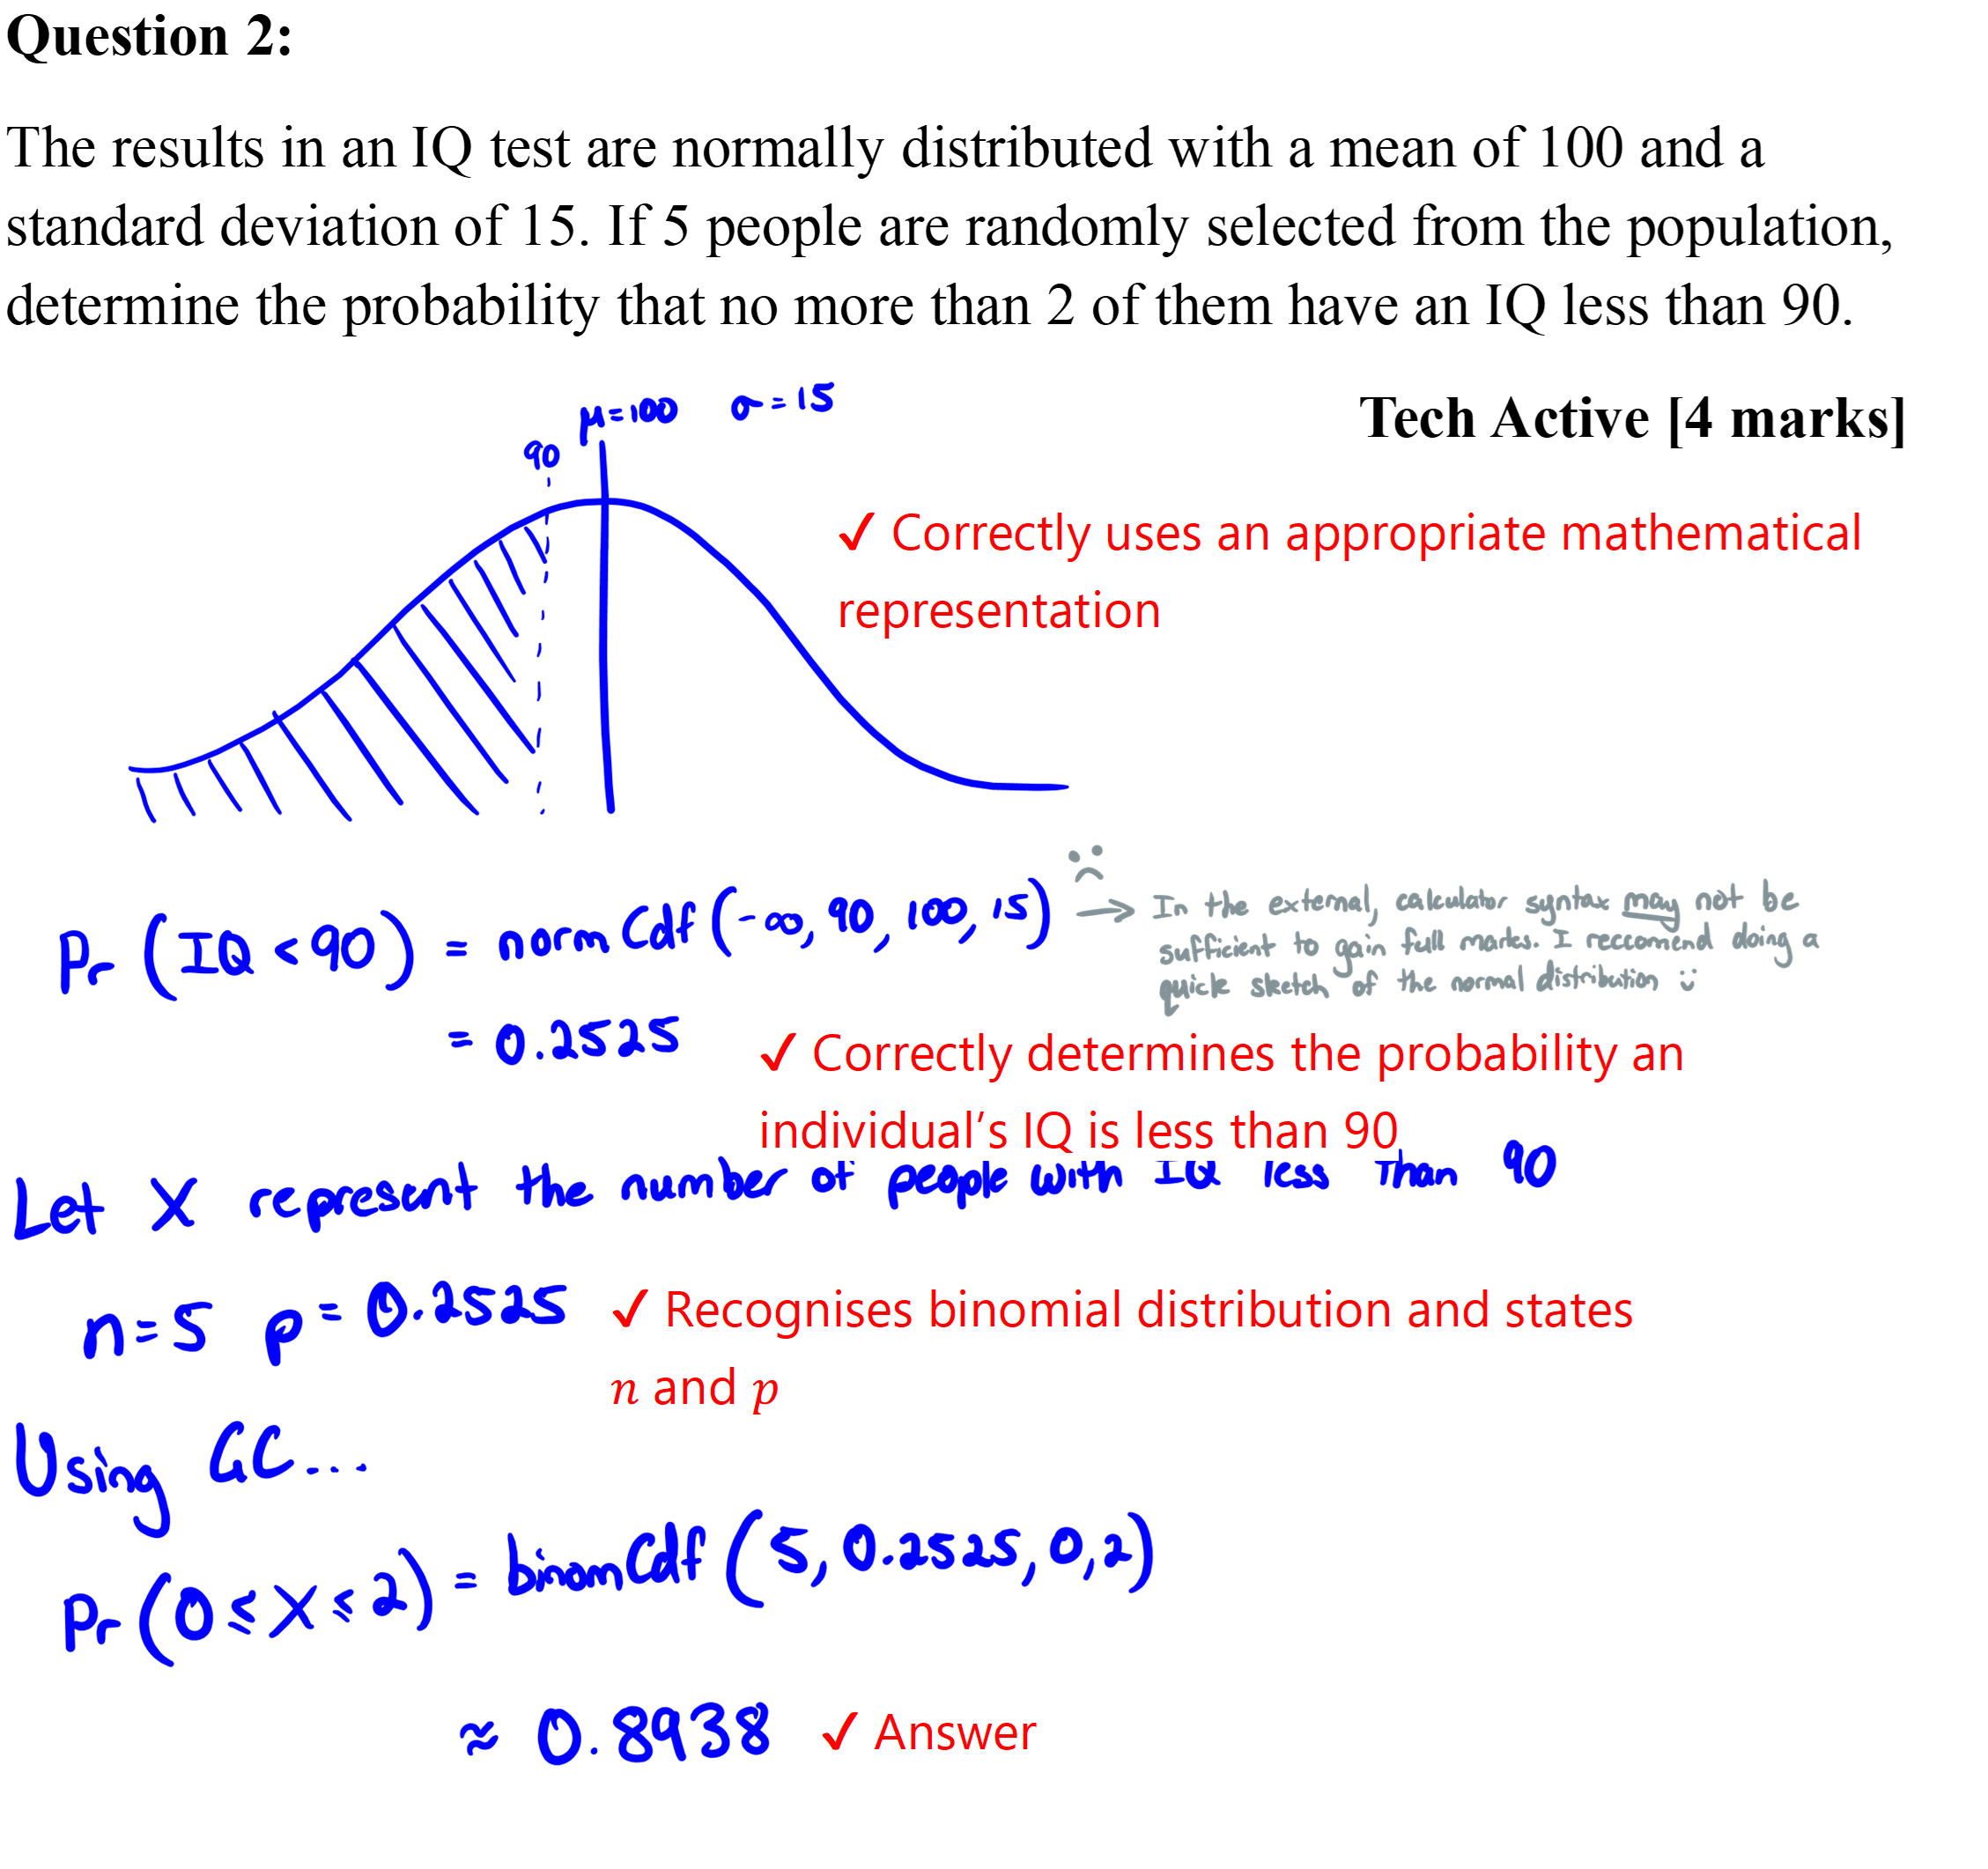 Question 2:
The results in an IQ test are normally distributed with a mean of 100 and a
standard deviation of 15. If 5 people are randomly selected from the population,
determine the probability that no more than 2 of them have an IQ less than 90.
μ=100 σ=15
Tech Active [4 marks]
90
✓ Correctly uses an appropriate mathematical
representation
Pr (IQ <90) = norm Cdf (-∞, 90, 100, 15)
→ In the external, calculator syntax may not be
sufficient to gain full marks. I reccomend doing a
quick sketch of the normal distribution :)
= 0.2525
✓ Correctly determines the probability an
individual's IQ is less than 90
Let X represent the number of people with IQ less than 90
n=5 p=0.2525
✓ Recognises binomial distribution and states
n and p
Using GC...
Pr (0≤X≤2) = binom Cdf (5, 0.2525, 0, 2)
≈ 0.8938 ✓ Answer